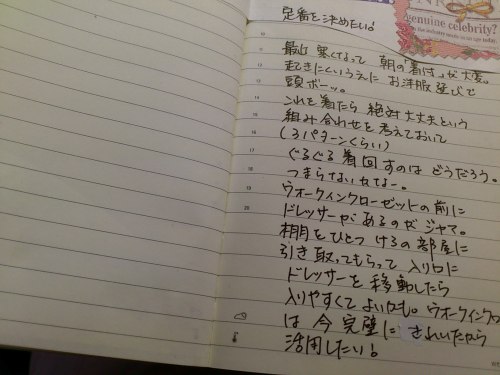 genuine celebrity?
定番を決めたい!
10
11 最近 寒くなって 朝の「着付」が大変。
12 起きにくいうえに お洋服選びで
13 頭ボーッ。
14 これを着たら 絶対大丈夫という
15 組み合わせを考えておいて
16 (3パターンくらい)
17 ぐるぐる着回すのは どうだろう。
18 つまらないかなー。
19 ウォークィンクローゼットの前に
20 ドレッサーが あるのがジャマ。
棚をひとつ けるの部屋に
引き取ってもらって 入り口に
ドレッサーを 移動したら
入りやすくて よいかも。ウォークィンクロ
は 今 完璧に きれいだから
活用したい!